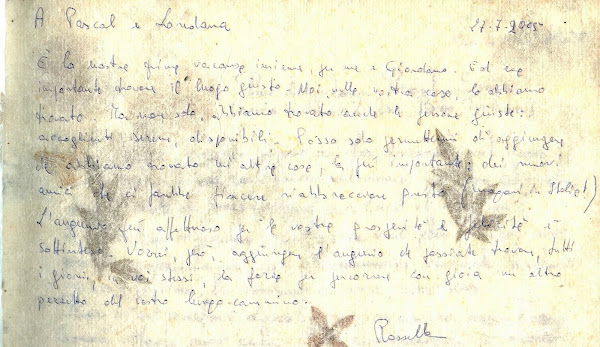 A Pascal e Loredana 27-7-2005
È la nostra prima vacanza insieme, per me e Giordano. Ed era
importante trovare il luogo giusto. Noi nella vostra casa lo abbiamo
trovato. Ma non solo. Abbiamo trovato anche le persone giuste:
accoglienti, serene, disponibili. Posso solo permettermi di aggiungere
che abbiamo trovato un'altra cosa, la più importante: dei nuovi
amici che ci farebbe piacere riabbracciare presto (magari in Italia!)
L'augurio più affettuoso per la vostra prosperità e felicità è
sottinteso. Vorrei, però, aggiungere l'augurio che possiate trovare, tutti
i giorni, in voi stessi, la forza per percorrere con gioia un altro
pezzetto del vostro lungo cammino.
Rossella